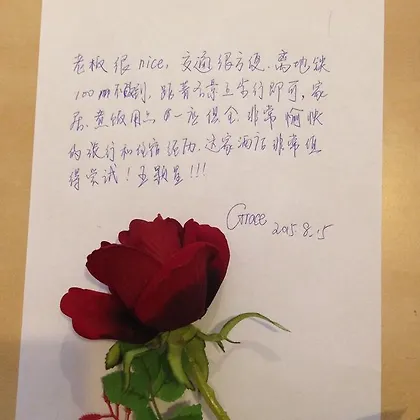 老板很nice, 交通很方便. 离地铁
100m不到, 跟着务景点步行即可, 家
居. 煮饭用品 一应俱全. 非常愉快
的旅行和住宿经历. 这家酒店非常值
得尝试! 五颗星!!!
Grace
2015.8.15